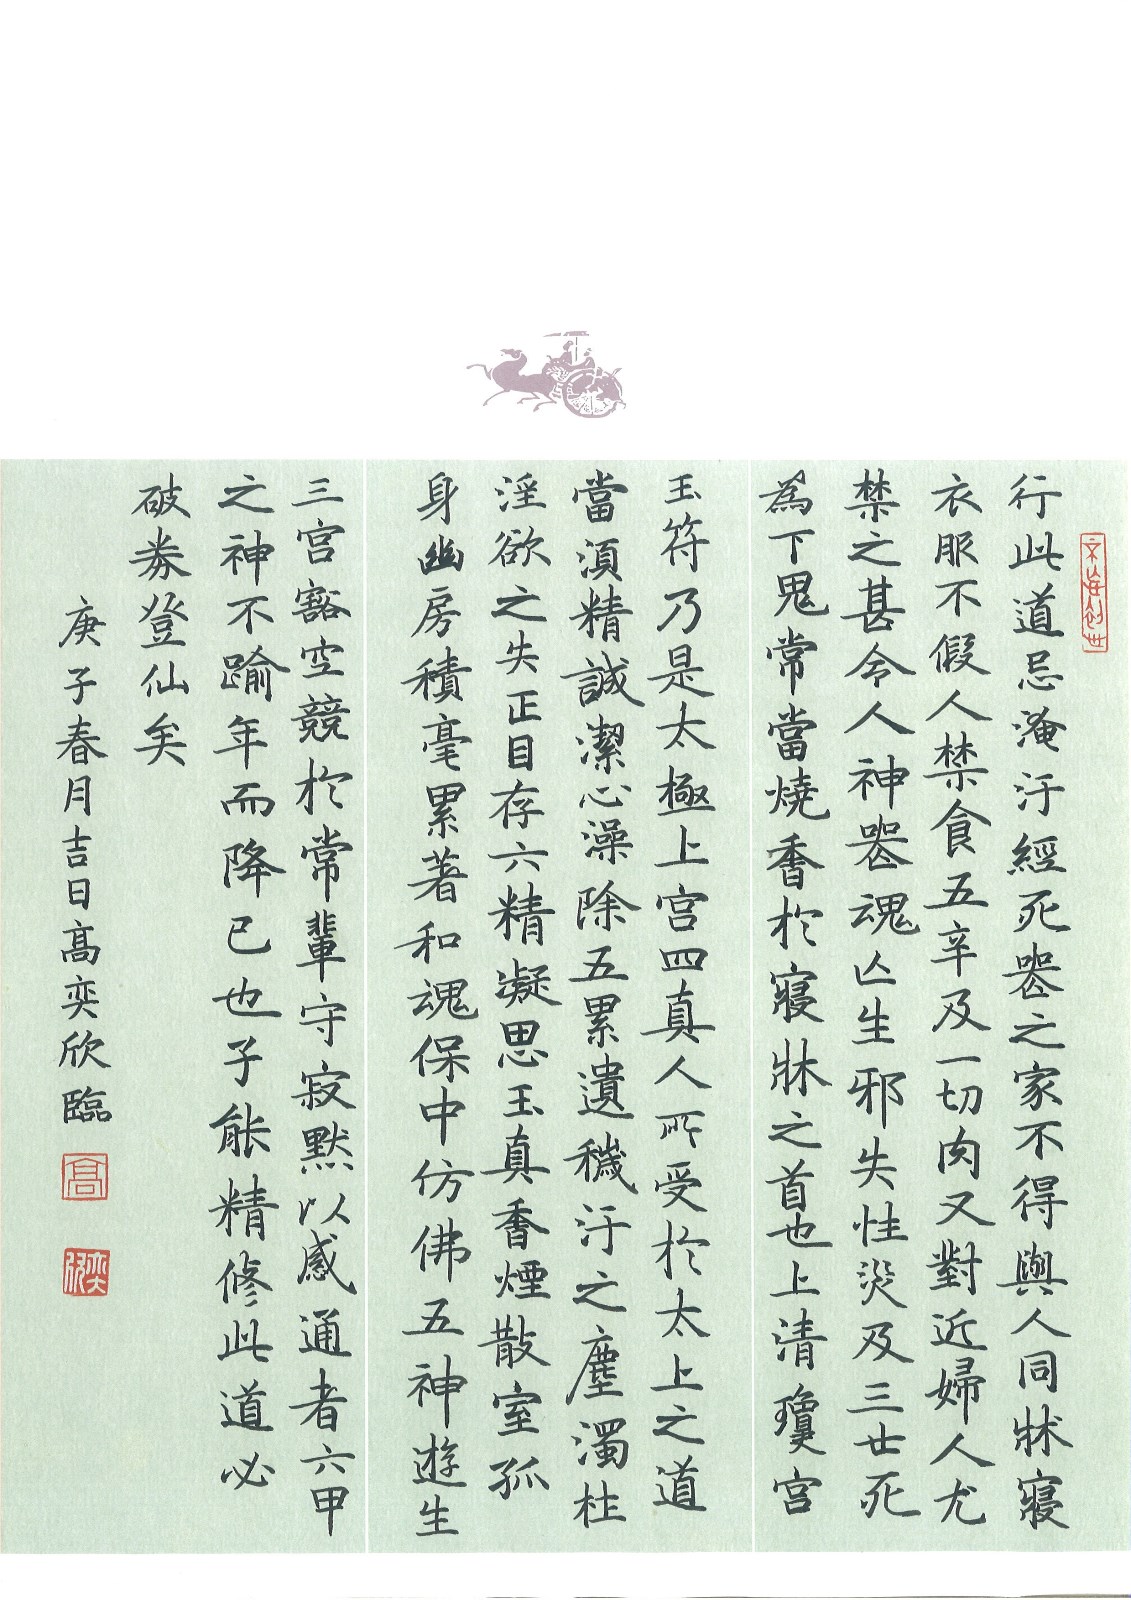 行此道忌淹汙經死喪之家不得與人同牀寢
衣服不假人禁食五辛及一切肉又對近婦人尤
禁之甚令人神喪魂亡生邪失性災及三世死
為下鬼常當燒香於寢牀之首也上清瓊宮
玉符乃是太極上宮四真人所受於太上之道
當須精誠潔心澡除五累遺穢汙之塵濁杜
淫欲之失正目存六精凝思玉真香煙散室孤
身幽房積毫累著和魂保中仿佛五神遊生
三宮豁空競於常輩守寂默以感通者六甲
之神不踰年而降已也子能精修此道必
破券登仙矣
庚子春月吉日高奕欣臨
高